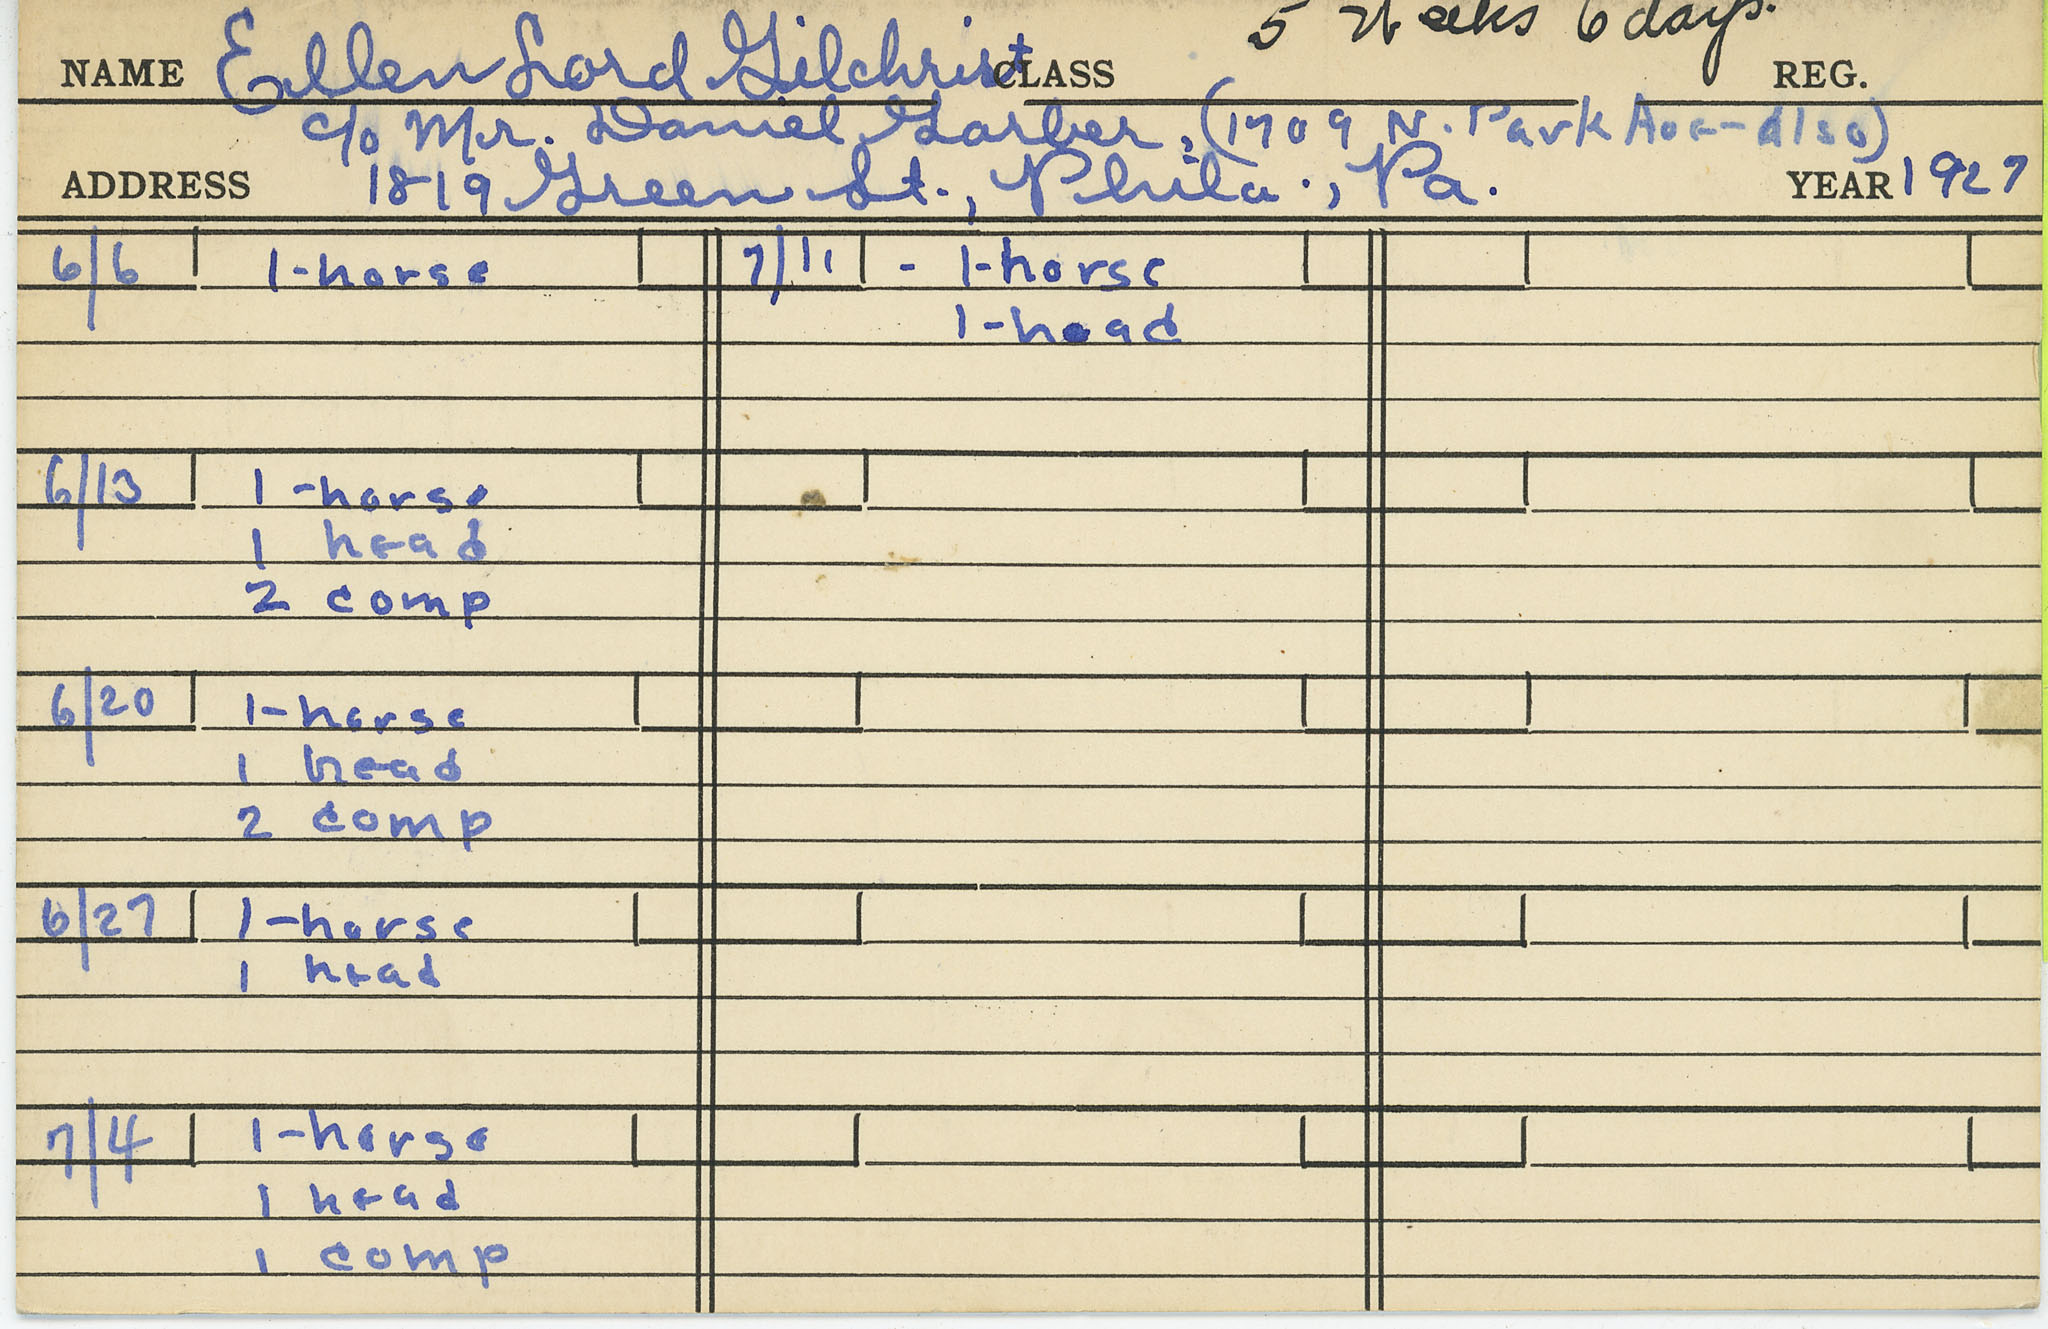 5 Weeks 6 days.
NAME Ellen Lord Gilchrist CLASS REG.
c/o Mr. Daniel Garber, (1709 N. Park Ave - also)
ADDRESS 1819 Green St., Phila., Pa. YEAR 1927
6/6 1-horse 7/11 - 1-horse
1-head
6/13 1-horse
1 head
2 comp
6/20 1-horse
1 head
2 comp
6/27 1-horse
1 head
7/4 1-horse
1 head
1 comp